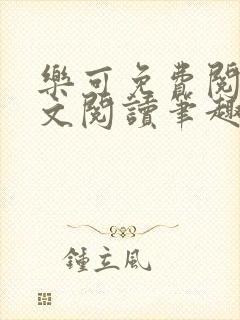 樂可免費閱
文閱讀筆趣
鍾立風